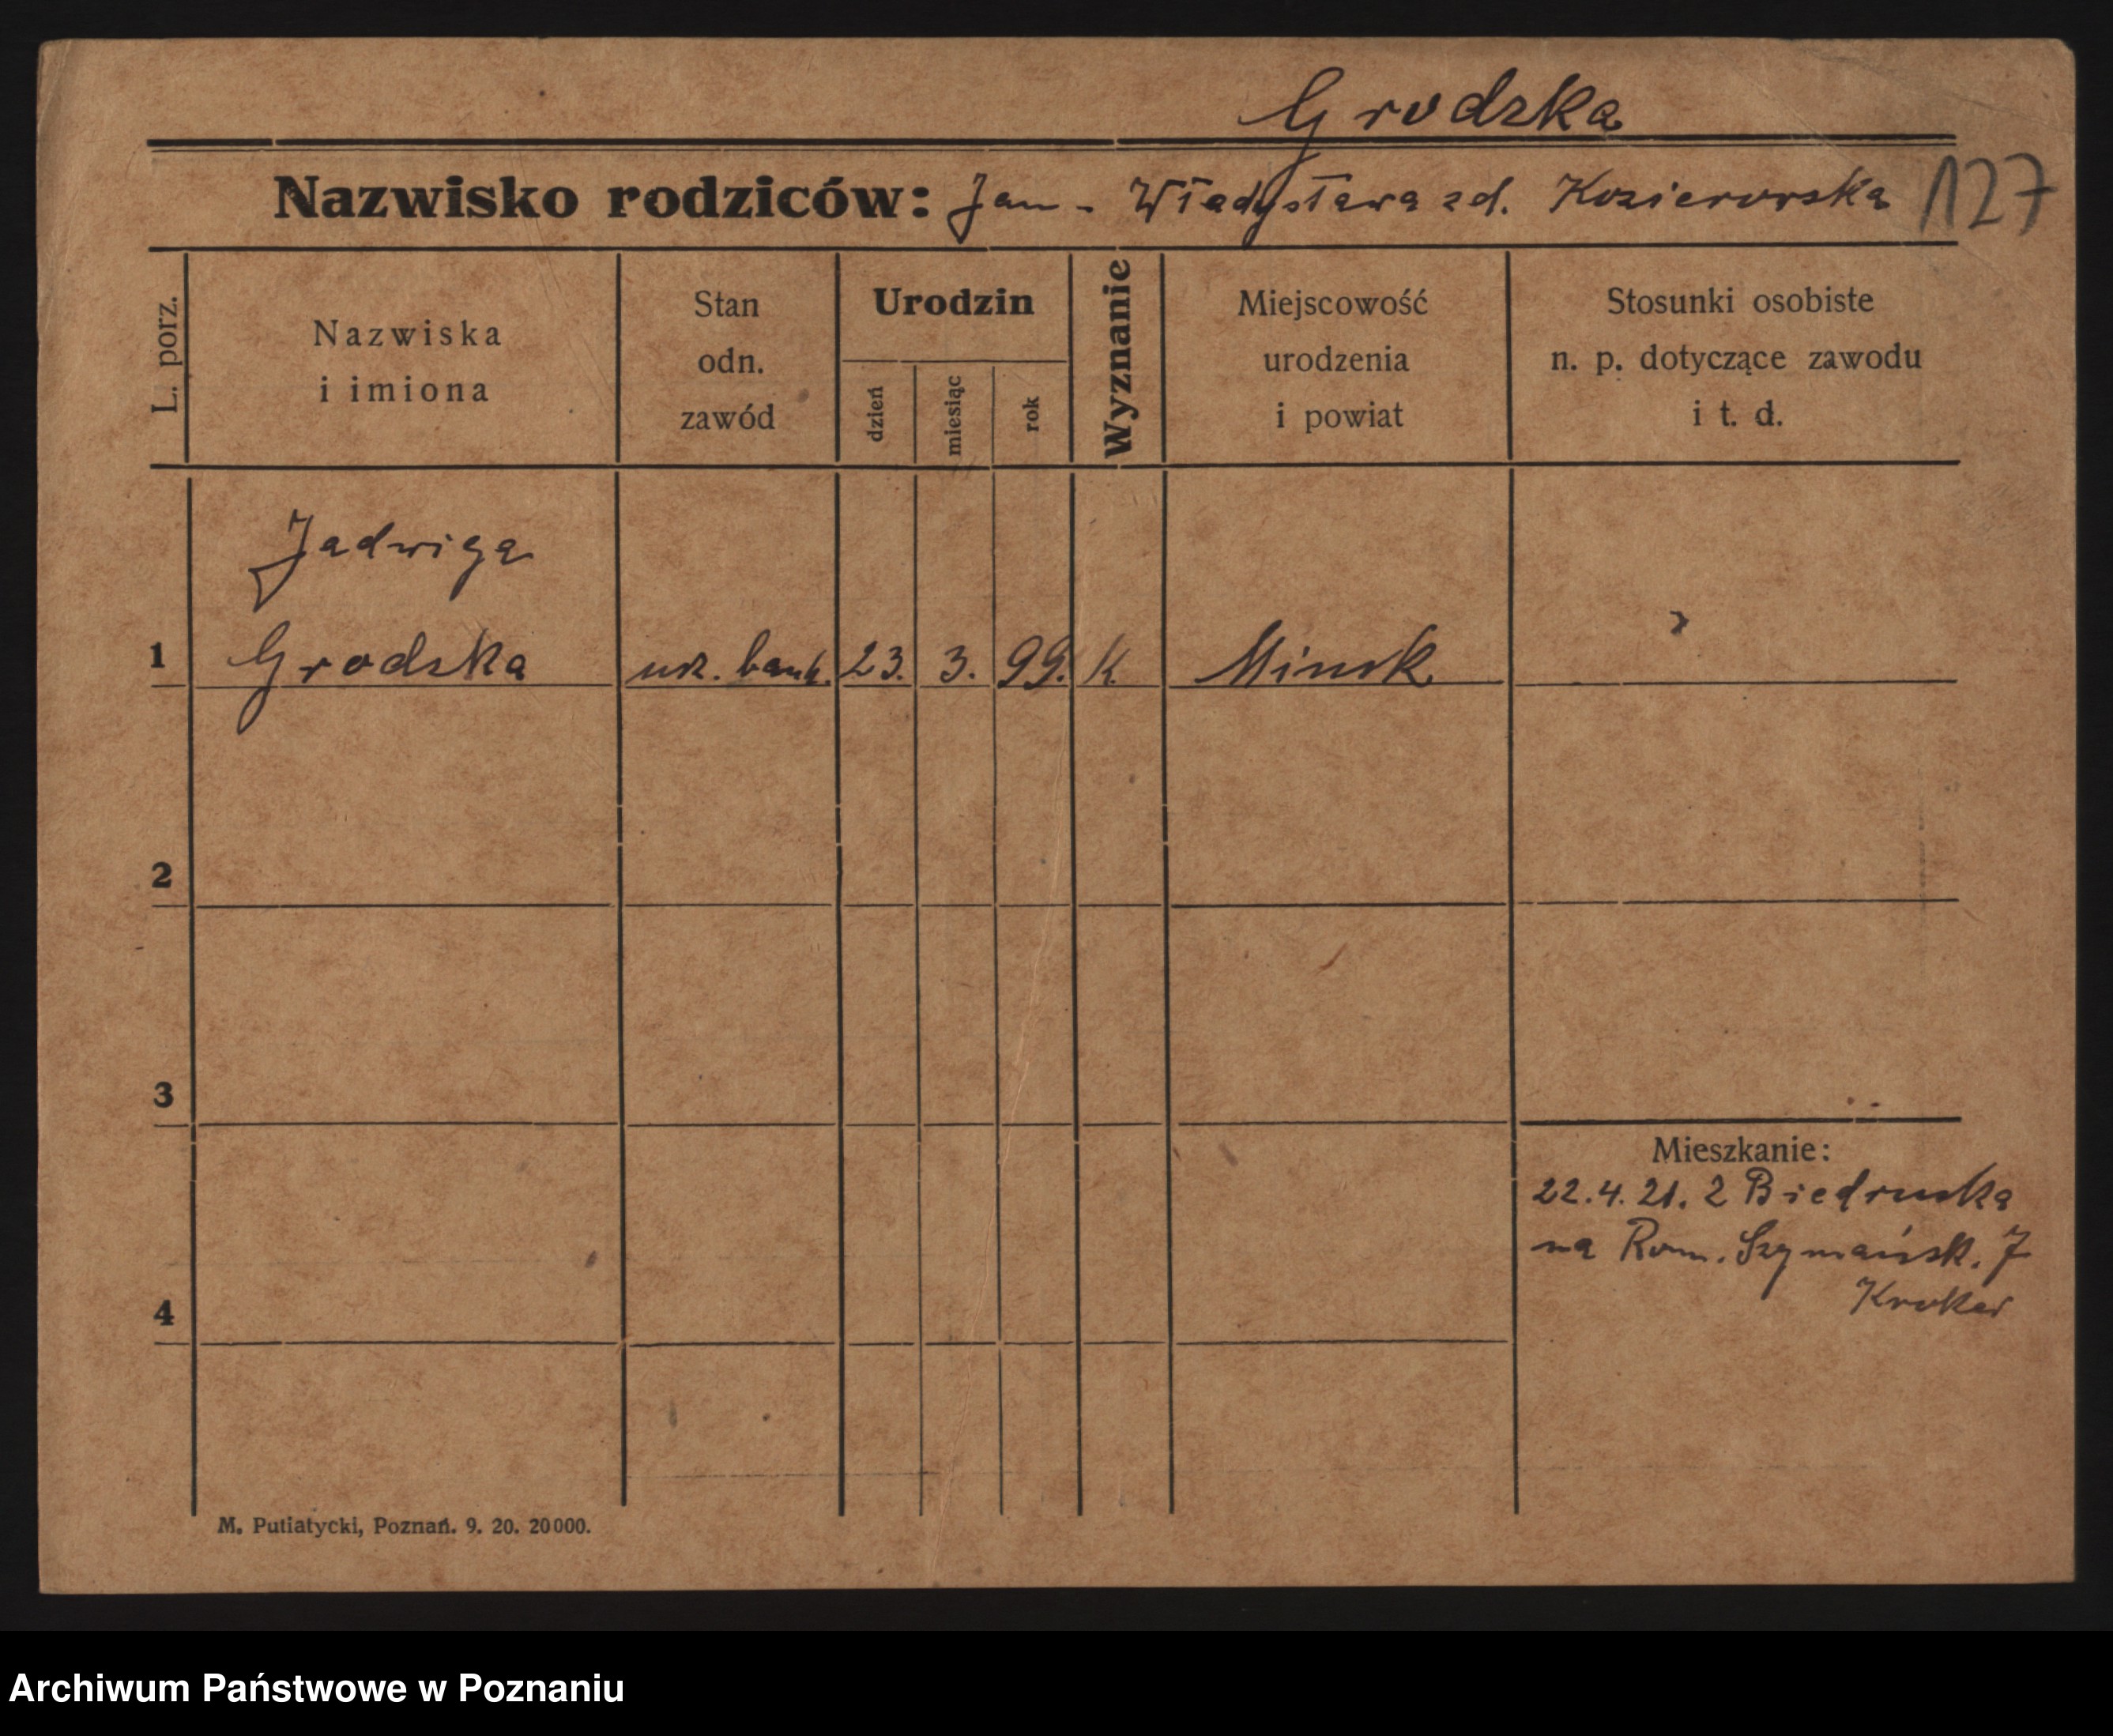 Grodzka
Nazwisko rodziców: Jan - Władysława zd. Kozierowska 127
L. porz.
Nazwiska
i imiona
Stan
odn.
zawód
Urodzin
dzień
miesiąc
rok
Wyznanie
Miejscowość
urodzenia
i powiat
Stosunki osobiste
n. p. dotyczące zawodu
i t. d.
Jadwiga
1 Grodzka urz. bank. 23. 3. 99. K. Minsk
2
3
Mieszkanie:
22.4.21. z Biedruska
na Rom. Szymańsk. 7
4
M. Putiatycki, Poznań. 9. 20. 20000.
Archiwum Państwowe w Poznaniu